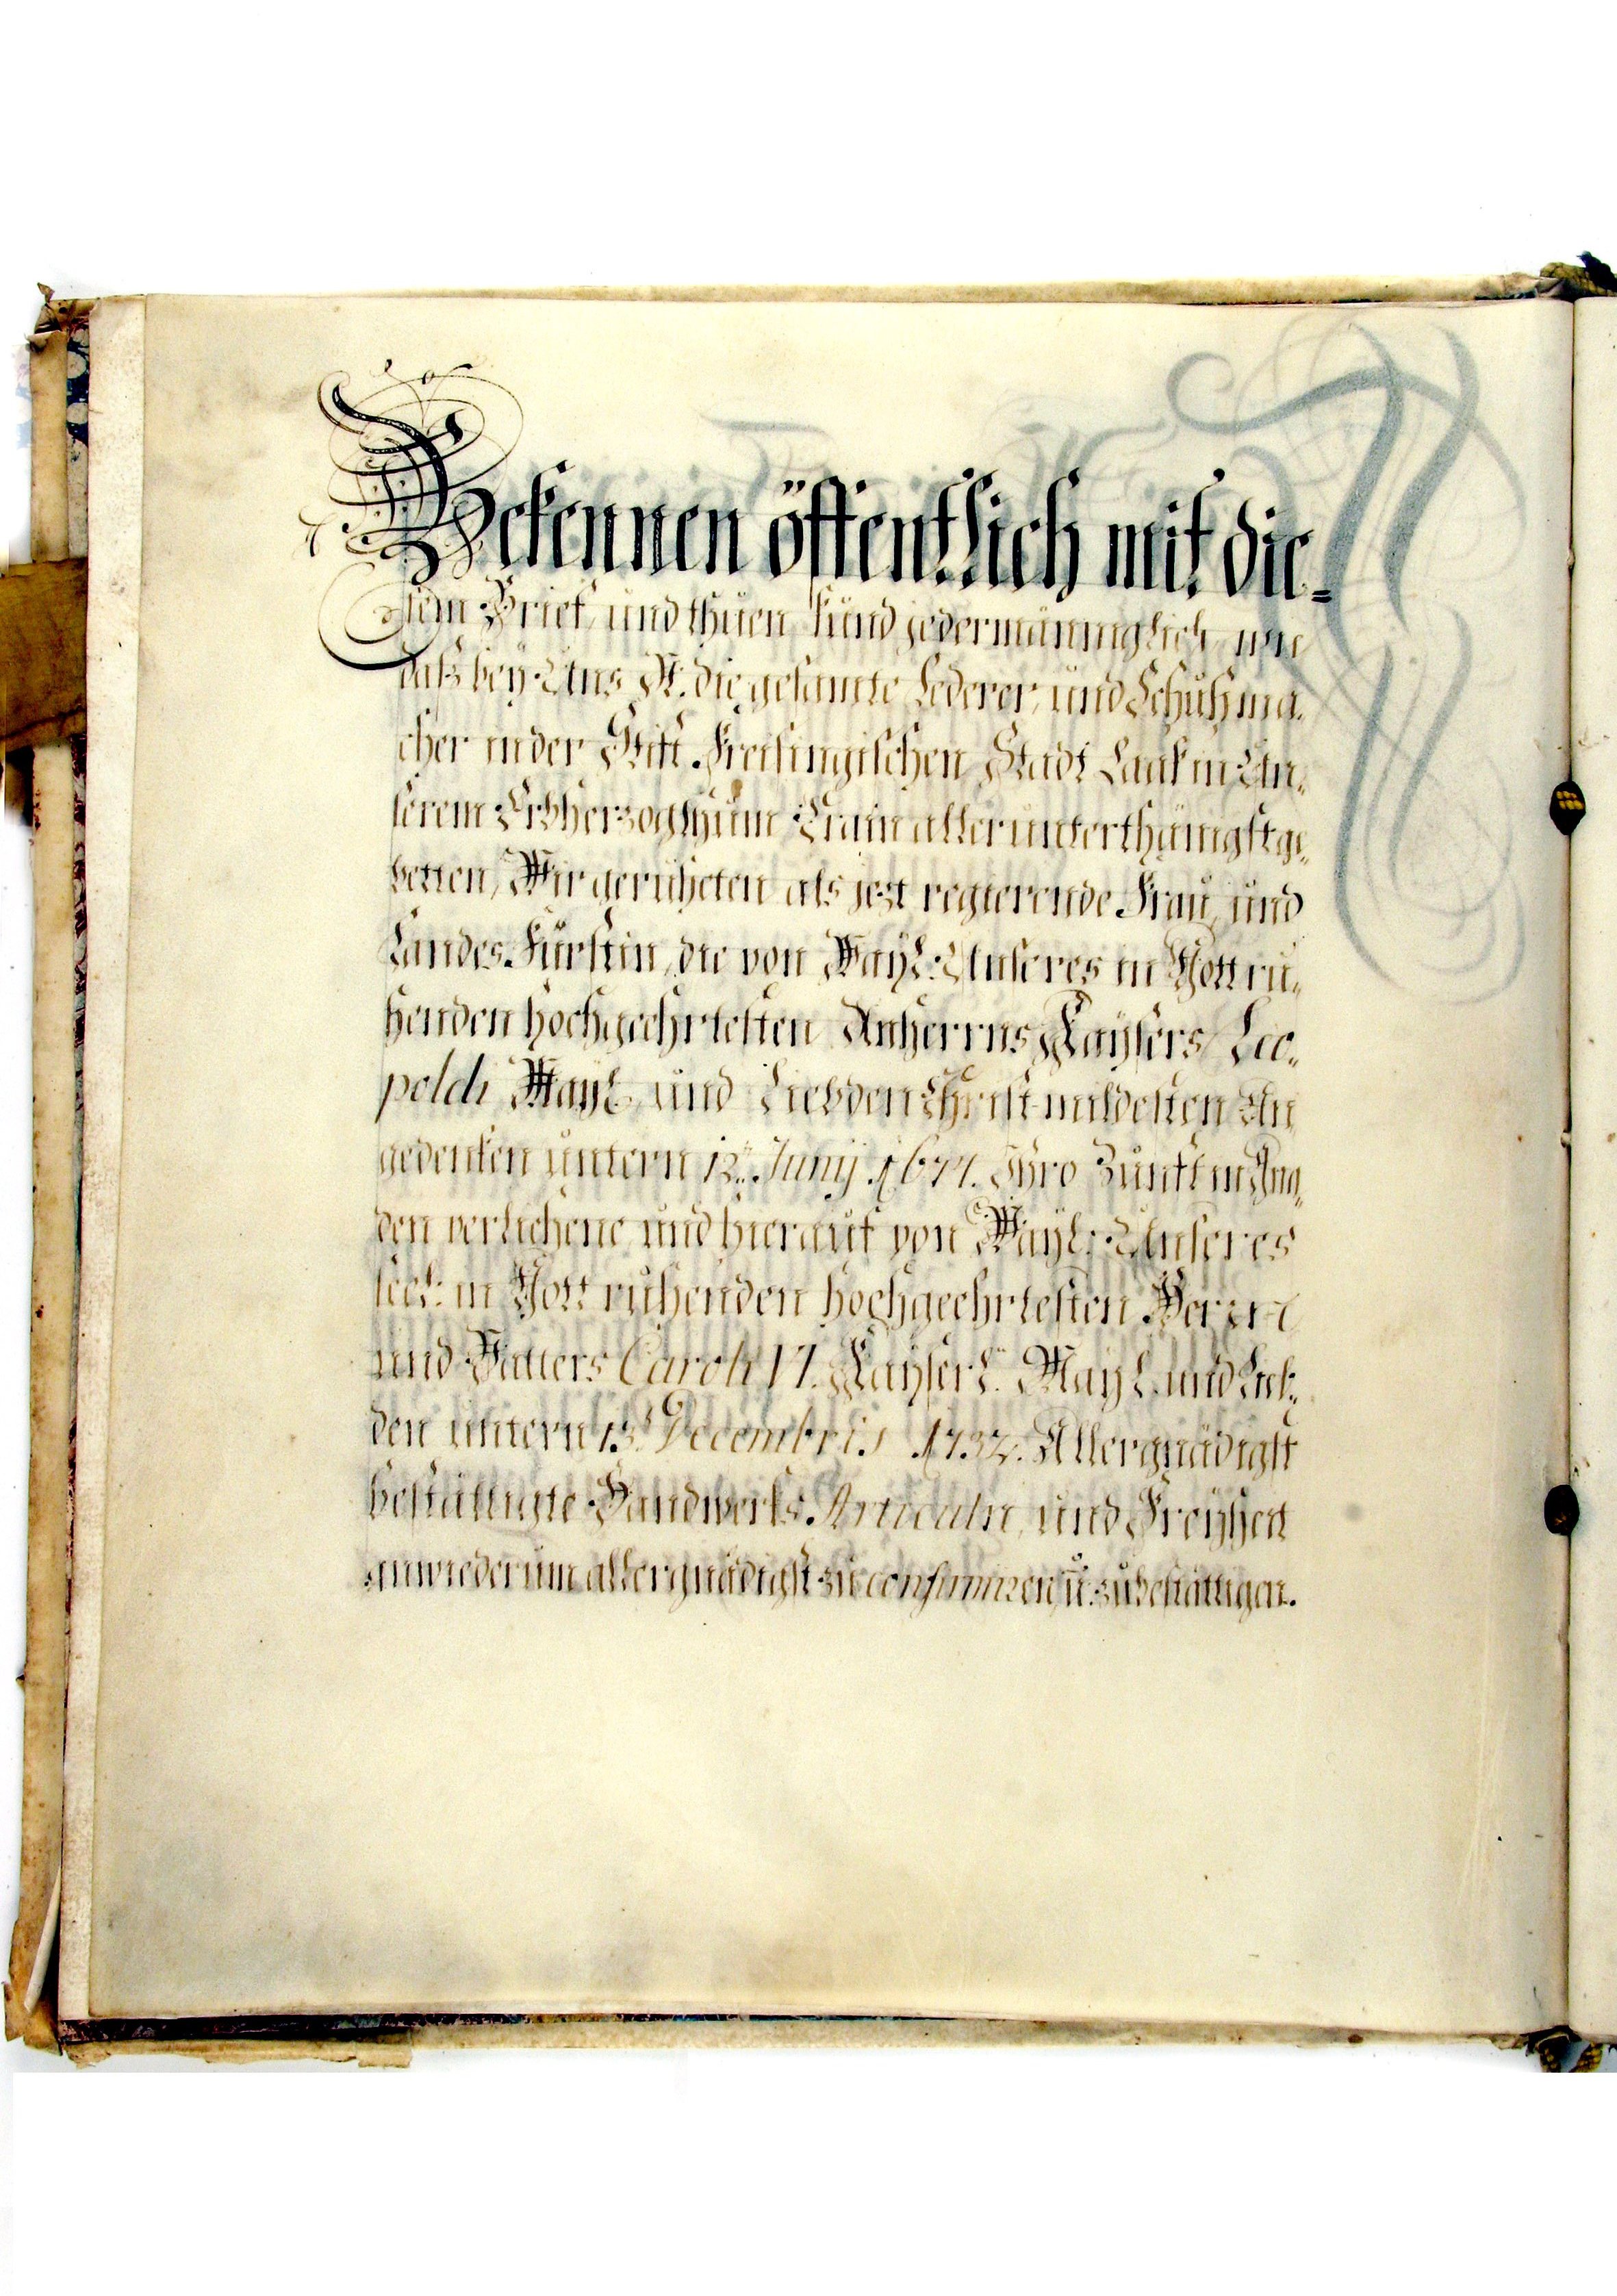 Bekennen öffentlich mit die=
sem Brief, und thuen kund jedermänniglich, wie
daß bey Uns N: die gesamte Lederer, und Schuhma,
cher in der Stift Freisingischen Stadt Lauk in Un,
serem Erbherzogthum Crain allerunterthänigst ge,
betten, Wir geruheten als jezt regierende Frau, und
Landes Fürstin, die von Wayl: Unseres in Gott ru,
henden hochgeehrtesten Anherrns Kaysers Leo,
poldi May: und Liebden Christ-mildesten An
gedenken untern 12. Junÿ 1677. Ihro Zunft in Gna,
den verliehene und hierauf von Wayl: Unseres
seel: in Gott ruhenden hochgeehrtesten Herrn
und Vatters Caroli VI. Kayserl: May: und Lieb,
den untern 13. Decembris 1732. Allergnädigst
bestättigte Handwerks Articuln, und Freyheit
anwiederum allergnädigst zu confirmiren, u: zubestättigen.